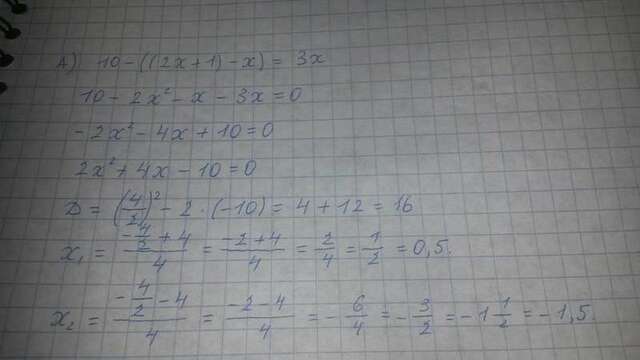 А) 10 - ((2x + 1) - x) = 3x
10 - 2x² - x - 3x = 0
- 2x² - 4x + 10 = 0
2x² + 4x - 10 = 0
D = (4/2)² - 2 · (-10) = 4 + 12 = 16
x₁ = (-4/2 + 4)/4 = (-2 + 4)/4 = 2/4 = 1/2 = 0,5.
x₂ = (-4/2 - 4)/4 = (-2 - 4)/4 = - 6/4 = - 3/2 = -1 1/2 = -1,5.